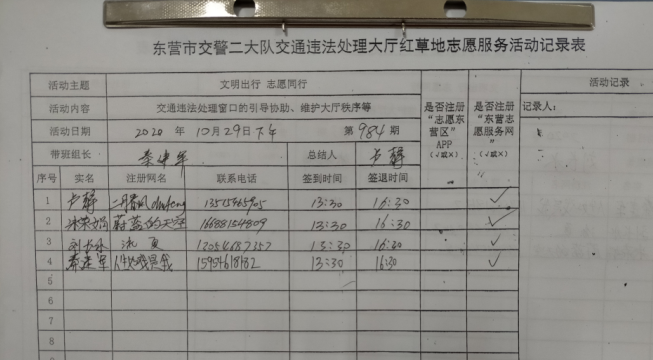 东营市交警二大队交通违法处理大厅红草地志愿服务活动记录表
活动主题 文明出行 志愿同行 是否注册“志愿东营区”APP（√或×） 是否注册“东营志愿服务网”（√或×） 活动记录
活动内容 交通违法处理窗口的引导协助、维护大厅秩序等 记录人：
活动日期 2020 年 10月29日下午 第 984 期
带班组长 总结人 卢静
序号 实名 注册网名 联系电话 签到时间 签退时间
1 卢静 13:30 16:30 √
2 蔚蓝的天空 16688154809 13:30 16:30 √
3 13:30 16:30 √
4 13:30 16:30 √
5
6
7
8